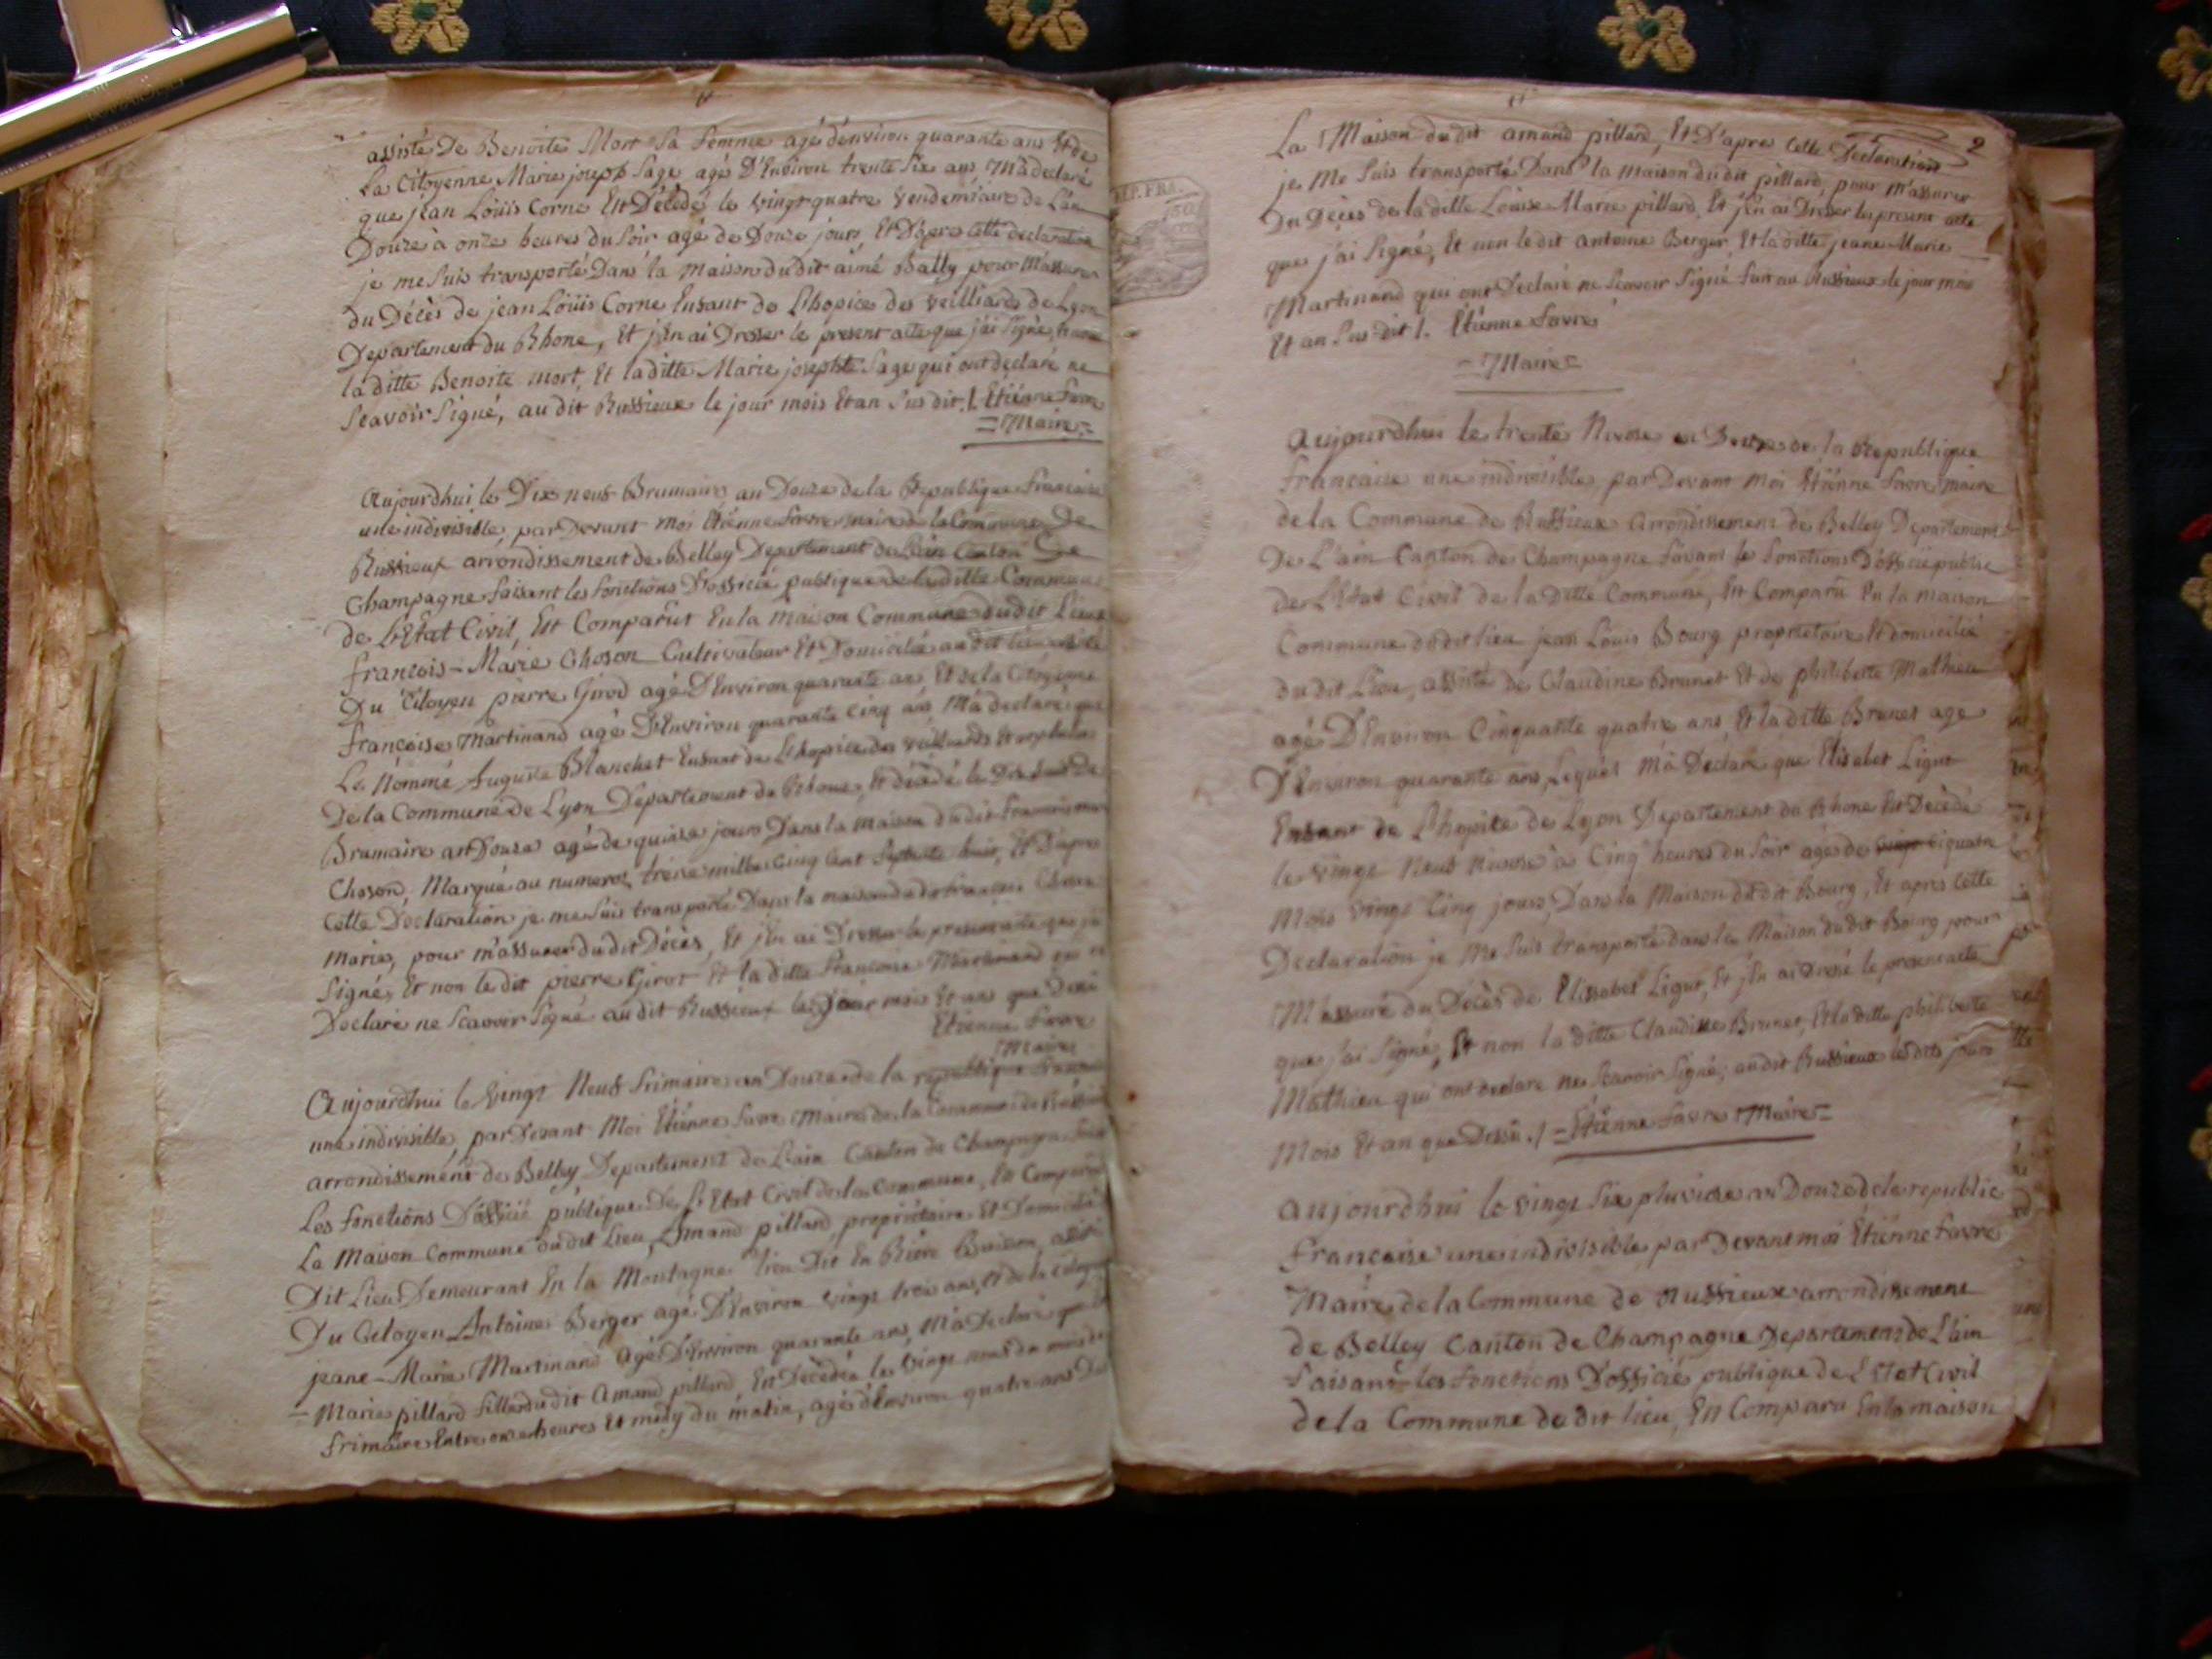 assisté De Benoite Mort Sa femme agé d'environ quarante ans Et de
La Citoyenne Marie joseph Sage agés D'Environ trente Six ans, M'a declaré
que jean Loüis Corne Est Décédé le vingt quatre vendemiaire de L'an
Douze à onze heures du Soir agé de Douze jours, Et D'apres cette declaration
je me suis transporté Dans la maison du dit aimé Bally pour M'assurer
du Décès de jean Loüis Corne Enfant de L'hopice des veilliards de Lyon
Departement du Rhone, Et j'En ai Dresser le présent acte que j'ai Signé,
la ditte Benoite mort, Et la ditte Marie josephte Sage qui ont declaré ne
Scavoir Signé, au dit Russieux le jour mois Et an Sus dit ./. Etiénne Favre
= Maire =
Aujourdhui le Dix neuf Brumaire an Douze de la Republique francaise
une indivisible, par Devant moi Etienne favre maire de la Commune De
Russieux arrondissement de Belley Departement de L'ain Canton De
Champagne faisant les fonctions D'officié publique de la ditte Commune
de L'Etat Civil, Est Comparût En la maison Commune du dit Lieux
francois-Marie Choson Cultivateur Et Domicilié au dit lieu
Du Citoyen pierre Girod agé D'Environ quarante ans, Et de la Citoyenne
francoise Martinand agé D'Environ quarante cinq ans M'a declaré que
Le Nommé Auguste Blanchet Enfant de L'hopice des veilliards Et orphelins
De la Commune de Lyon Departement du Rhone, Et décédé le Dix huit De
Brumaire an Douze agé de quinze jours Dans la maison du dit francois marie
Choson, Marqué au numeros treize mille Cinq Cent Septente huit, Et D'apres
cette Declaration je me Suis transporté Dans la maison du dit francois Choson
marie, pour m'assurer du dit Décès, Et j'En ai Dresser le present acte que j'ai
Signé, Et non le dit pierre Girot Et la ditte francoise Martinand qui on
Declaré ne Scavoir Signé au dit Russieux les jour mois Et an que Dessu
Etienne Favre
Maire
Aujourdhui le vingt Neuf frimaire an Douze de la republique francaise
une indivisible, par Devant Moi Etiénne favre Maire de la Commune de Russieux
arrondissement de Belley Departement de L'ain Canton de Champagne
Les fonctions D'officié publique De L'Etat Civil de la Commune, Est Comparût
La Maison Commune du dit Lieu, Amand pillard, proprietaire Et Domicilié
Dit Lieu Demeurant En la Montagne lieu Dit En Biére assisté
Du Citoyen Antoine Berger agé D'Environ vingt trois ans, Et de la Citoyenne
jeane-Marie Martinand agé D'Environ quarante ans, M'a Declaré que
- Marie pillard fille du dit Amand pillard, Est Décédéa le vingt neuf du mois de
frimaire Entre onze heures Et midy du matin, agés d'Environ quatre ans
2
La Maison du dit amand pillard, Et D'apres Cette Declaration
je Me Suis transporté Dans la maison du dit pillard, pour m'assurer
Du Décès de la ditte Loüise Marie pillard, Et j'En ai Dresser le present acte
que j'ai Signé, Et non le dit antoine Berger Et la ditte jeane Marie
Martinand qui ont Declaré ne Scavoir Signé fait au Russieux le jour mois
Et an Sus dit ./. Etienne Favre
= Maire =
Aujourdhui le trente Nivose an Douze de la Republique
francaise une indivisible, par Devant Moi Etiénne favre maire
de la Commune de Russieux arrondissement de Belley Departement
De L'ain Canton de Champagne faisant les fonctions D'officié public
de L'Etat Civil de la Ditte Commune, Est Comparû En la maison
Commune du dit lieu jean Loüis Bourg proprietaire Et domicilié
du dit Lieu, assisté de Claudine Brunet Et de philiberte Mathieu
agé D'Environ Cinquante quatre ans, Et la ditte Brunet age
D'Environ quarante ans, Lequel M'a Declaré que Elisabet Ligut
Enfant de L'hopice de Lyon Departement du Rhone Est Décédé
le vingt Neuf Nivose à Cinq heures du Soir agés de quatre
Mois vingt Cinq jours, Dans la Maison du dit Bourg, Et apres Cette
Declaration je Me Suis transporté dans la Maison du dit Bourg pour
M'assuré du Décès de Elissabet Ligut, Et j'En ai Dressé le present acte
que j'ai Signé, Et non la ditte Claudine Brunet, Et la ditte philiberte
Mathieu qui ont declaré ne Scavoir Signé; au dit Russieux les dits jour
Mois Et an que Dessu ./. = Etiénne Favre Maire =
Aujourdhui le vingt Six pluviose an Douze de la republic
francaise une indivisible par Devant moi Etiénne Favre
Maire de la Commune de Russieux arrondissement
de Belley Canton de Champagne Departement de L'ain
faisant les fonctions D'officié publique de L'Etat Civil
de la Commune du dit lieu, Est Comparu En la maison